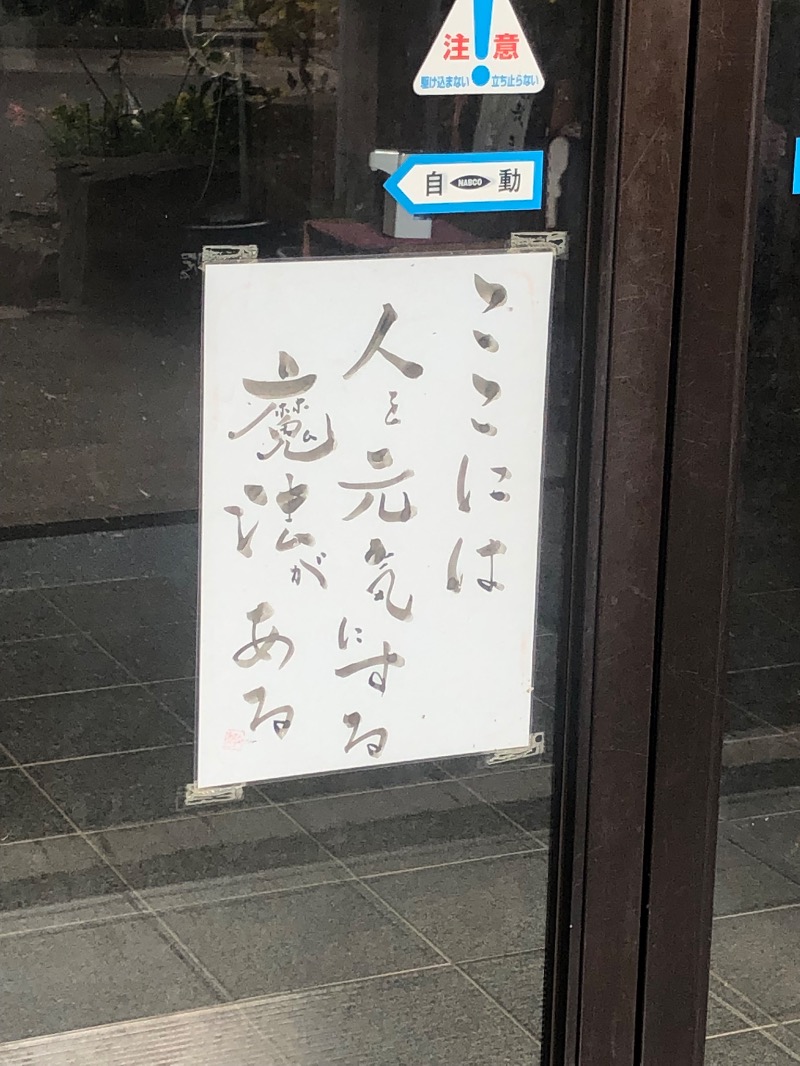 注意
駆け込まない 立ち止らない
自 NABCO 動
ここには
人を元気にする
魔法がある